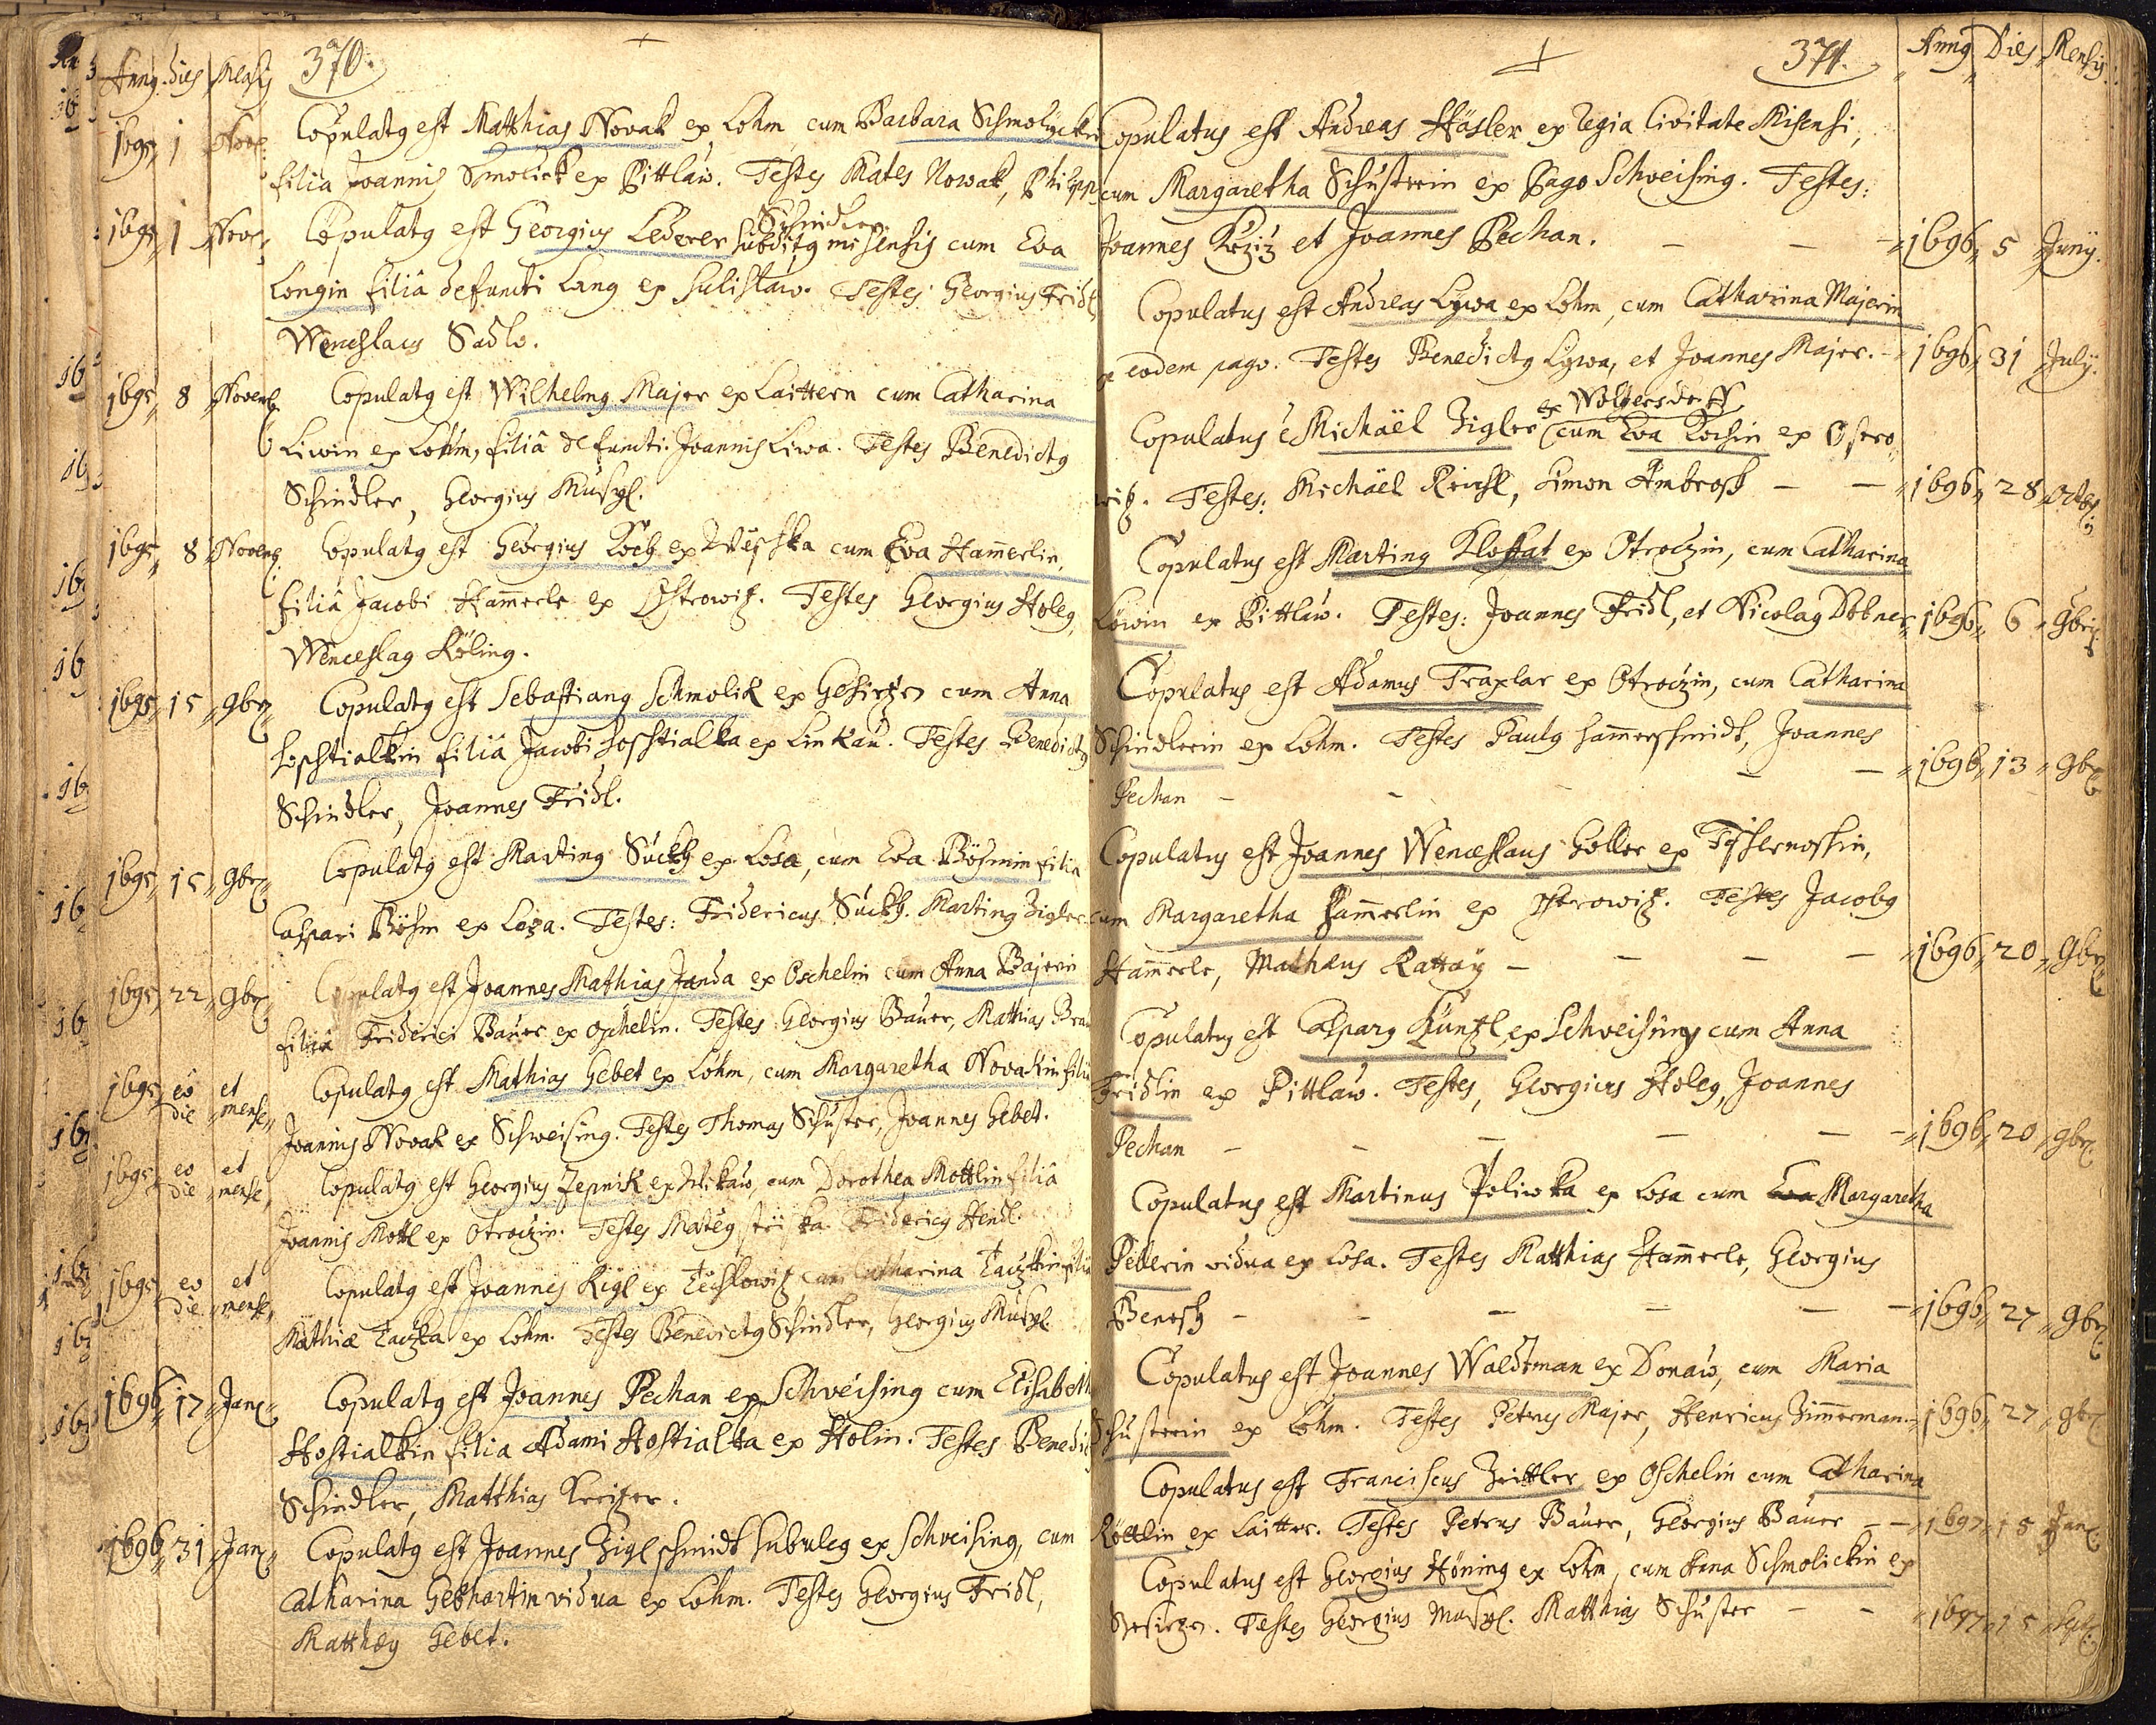 Annq. dies Mensis 370.
1695 1 Copulatq est Matthias Novak ex Lohm cum Barbara Schmolickin
filia Joannis Smolick ex Pittlaw. Testes Mates Nowak, Philipp
Schindler
1695 1 Nov. Copulatq est Georgius Lederer subditq misensis cum Eva
Longin filiâ defuncti Lang ex Sulislaw. Testes Georgius Fridl
Wenceslaus Sadlo.
1695 8 Novemb Copulatq est Wilhelmq Majer ex Laittern cum Catharina
Liwin ex Lohm, filiâ defuncti Joannis Liwa. Testes Benedictq
Schindler, Georgius Musyl.
1695 8 Novemb. Copulatq est Georgius Koch ex cum Eva Hamerlin,
filiâ Jacobi Hamerle ex Ostrowitz. Testes Georgius Holeg,
Wenceslaq Köling.
1695 15 9br Copulatq est Sebastianq Schmolik ex Gesirzen cum Anna
Hoschtialkin filiâ Jacobi Hoschtialka ex Linkau. Testes Benedictq
Schindler, Joannes Fridl.
1695 15 9br Copulatq est Martinq Suckh ex Losa, cum Eva Böhmin filia
Caspari Böhm ex Loza. Testes: Fridericus Suckh. Martinq Zigler.
1695 22 9br Copulatq est Joannes Mathias Janda ex Oschelin cum Anna Bajerin
filiâ Friderici Bauer ex Oschelin. Testes Georgius Bauer, Mathias
1695 eo die et mense Copulatq est Mathias Gebet ex Lohm, cum Margaretha Novakin filia
Joannis Novak ex Schweising. Testes Thomas Schuster, Joannes Gebet.
1695 eo die et mense Copulatq est Georgius Zepnik ex Mlikaw, cum Dorothea Mottlin filiâ
Joannis Mottl ex Otroczin. Testes Fridericq Hendl.
1695 eo die et mense Copulatq est Joannes Rigl ex cum Catharina Taczkin filia
Mathiæ Taczka ex Lohm. Testes Benedictq Schindler, Georgius Musyl
1696 17 Jan Copulatq est Joannes Pechan ex Schweising cum Elisabeth
Hostialkin filia Adami Hostialka ex Holin. Testes Benedictq
Schindler, Matthias Kreizer.
1696 31 Jan Copulatq est Joannes Ziglschmidt subuleq ex Schweising, cum
Catharina Gebhartin vidua ex Lohm. Testes Georgius Fridl,
Matthæq Gebet.
371. Annq Dies Mensis
Copulatus est Andreas Häsler ex regia Civitate Misensi,
cum Margaretha Schusterin ex Pago Schweising. Testes:
Joannes Krziz et Joannes Pechan. 1696 5 Junij.
Copulatus est Andreas Lywa ex Lohm, cum Catharina Majerin
ex eodem pago. Testes Benedictq Lywa, et Joannes Majer. 1696 31 July.
ex Wolfgersdorff
Copulatus ê Michaël Zigler cum Eva Kochin ex Ostro
witz. Testes: Michaël Reichl, Simon Ambrosch 1696 28 Octob
Copulatus est Martinq Klossat ex Otroczin, cum Catharina
Löwin ex Pittlaw. Testes: Joannes Fridl, et Nicolaq Dobner 1696 6 9bris
Copulatus est Adamus Traxlar ex Otroczin, cum Catharina
Schindlerin ex Lohm. Testes Paulq Hammerschmidt, Joannes
Pechan 1696 13 9br
Copulatus est Joannes Wenceslaus Holler ex Tschernoschin,
cum Margaretha Hamerlin ex Ostrowitz. Testes Jacobq
Hamerle, Mathæus Kattay 1696 20 9br
Copulatus est Casparq Küntzl ex Schweising cum Anna
Fridlin ex Pittlaw. Testes, Georgius Holeg, Joannes
Pechan 1696 20 9br
Copulatus est Martinus Poliwka ex Losa cum Eva Margaretha
Pellerin vidua ex Losa. Testes Matthias Hamerle, Georgius
Benesch 1696 27 9br
Copulatus est Joannes Waldtman ex Donaw, cum Maria
Schusterin ex Lohm. Testes Petrus Majer, Henricus Zimmerman. 1696 27 9br
Copulatus est Franciscus Zeittler ex Oschelin cum Catharina
Köttlin ex Laitter. Testes Petrus Bauer, Georgius Bauer 1697 15 Jan
Copulatus est Georgius Höning ex Lohm, cum Anna Schmolickin ex
Gesirzen. Testes Georgius Musyl. Matthias Schuster 1697 15